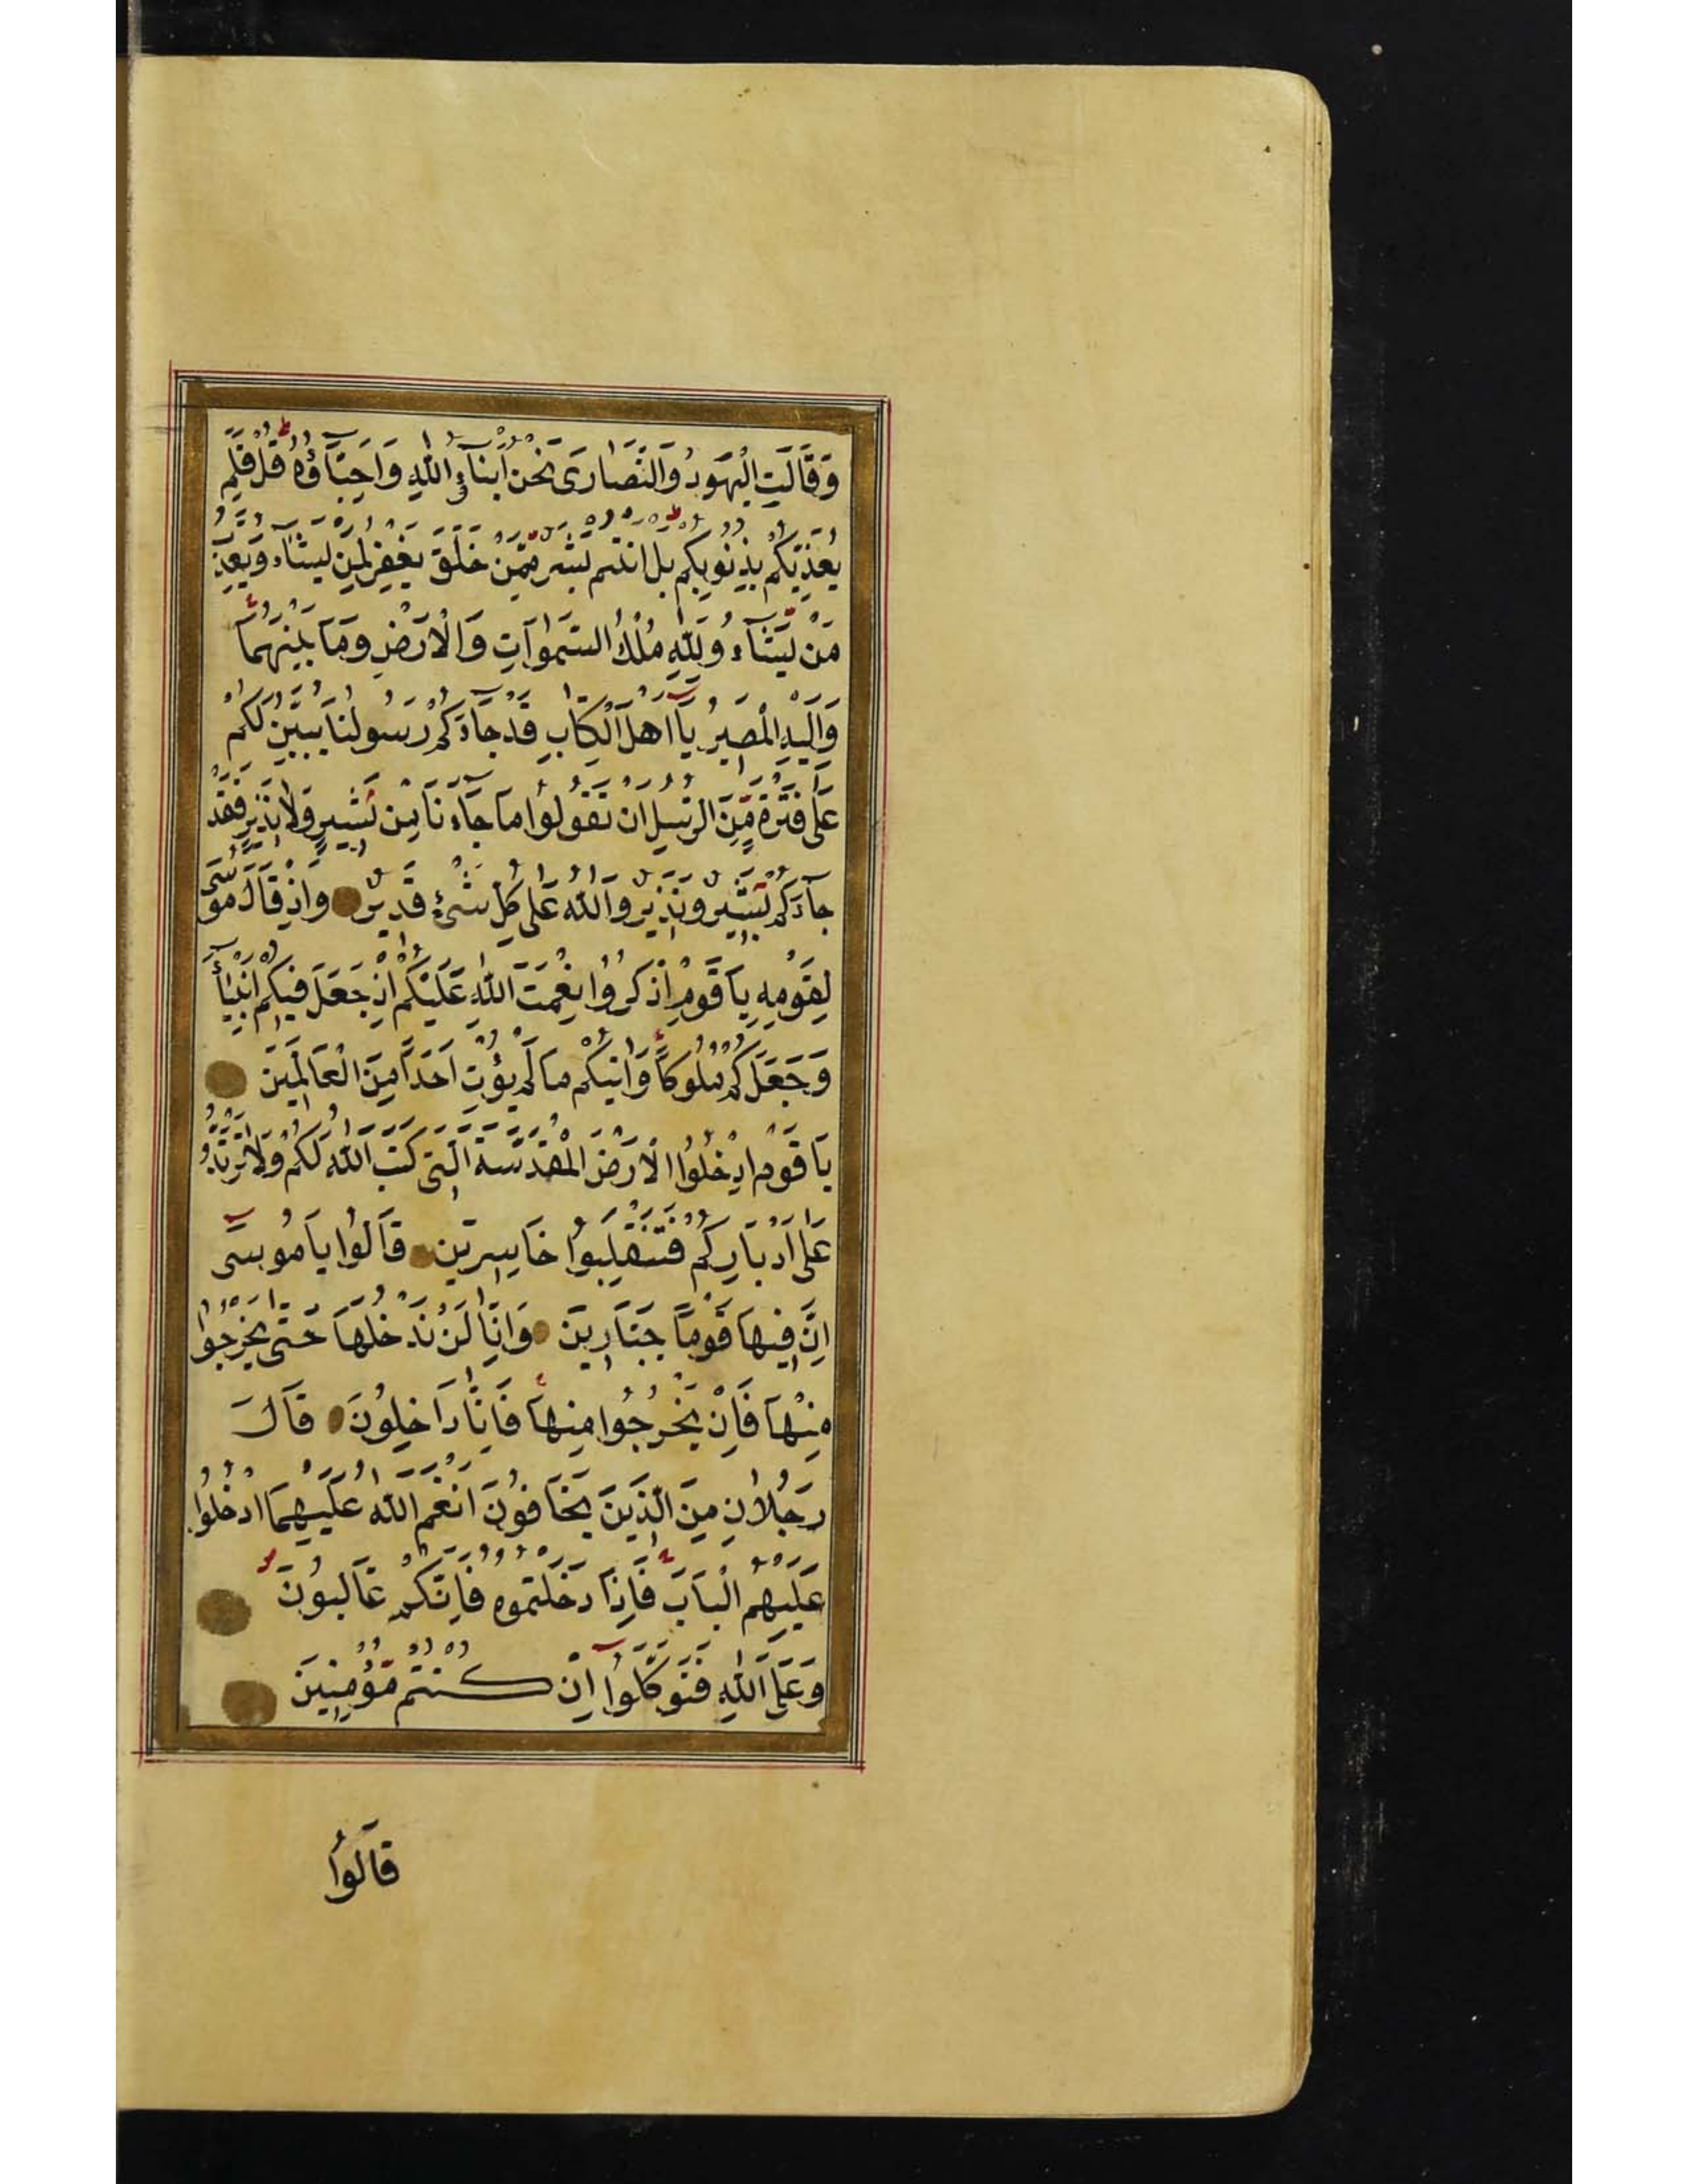 وَقَالَتِ الْيَهُودُ وَالنَّصَارَى نَحْنُ اَبْنَآءُ اللّٰهِ وَاَحِبَّآؤُهُ قُلْ فَلِمَ
يُعَذِّبُكُمْ بِذُنُوبِكُمْ بَلْ اَنْتُمْ بَشَرٌ مِّمَّنْ خَلَقَ يَغْفِرُ لِمَنْ يَشَآءُ وَيُعَذِّبُ
مَنْ يَّشَآءُ وَلِلّٰهِ مُلْكُ السَّمٰوَاتِ وَالْاَرْضِ وَمَا بَيْنَهُمَا
وَاِلَيْهِ الْمَصِيرُ يَآ اَهْلَ الْكِتَابِ قَدْ جَآءَكُمْ رَسُولُنَا يُبَيِّنُ لَكُمْ
عَلٰى فَتْرَةٍ مِّنَ الرُّسُلِ اَنْ تَقُولُوا مَا جَآءَنَا مِنْ بَشِيرٍ وَلَا نَذِيرٍ فَقَدْ
جَآءَكُمْ بَشِيرٌ وَنَذِيرٌ وَاللّٰهُ عَلٰى كُلِّ شَيْءٍ قَدِيرٌ وَاِذْ قَالَ مُوسَى
لِقَوْمِهِ يَا قَوْمِ اذْكُرُوا نِعْمَتَ اللّٰهِ عَلَيْكُمْ اِذْ جَعَلَ فِيكُمْ اَنْبِيَآءَ
وَجَعَلَكُمْ مُلُوكًا وَاٰتٰيكُمْ مَا لَمْ يُؤْتِ اَحَدًا مِنَ الْعَالَمِينَ
يَا قَوْمِ ادْخُلُوا الْاَرْضَ الْمُقَدَّسَةَ الَّتِي كَتَبَ اللّٰهُ لَكُمْ وَلَا تَرْتَدُّوا
عَلٰى اَدْبَارِكُمْ فَتَنْقَلِبُوا خَاسِرِينَ قَالُوا يَا مُوسَى
اِنَّ فِيهَا قَوْمًا جَبَّارِينَ وَاِنَّا لَنْ نَدْخُلَهَا حَتَّى يَخْرُجُوا
مِنْهَا فَاِنْ يَخْرُجُوا مِنْهَا فَاِنَّا دَاخِلُونَ قَالَ
رَجُلَانِ مِنَ الَّذِينَ يَخَافُونَ اَنْعَمَ اللّٰهُ عَلَيْهِمَا ادْخُلُوا
عَلَيْهِمُ الْبَابَ فَاِذَا دَخَلْتُمُوهُ فَاِنَّكُمْ غَالِبُونَ
وَعَلَى اللّٰهِ فَتَوَكَّلُوا اِنْ كُنْتُمْ مُّؤْمِنِينَ
قَالُوا